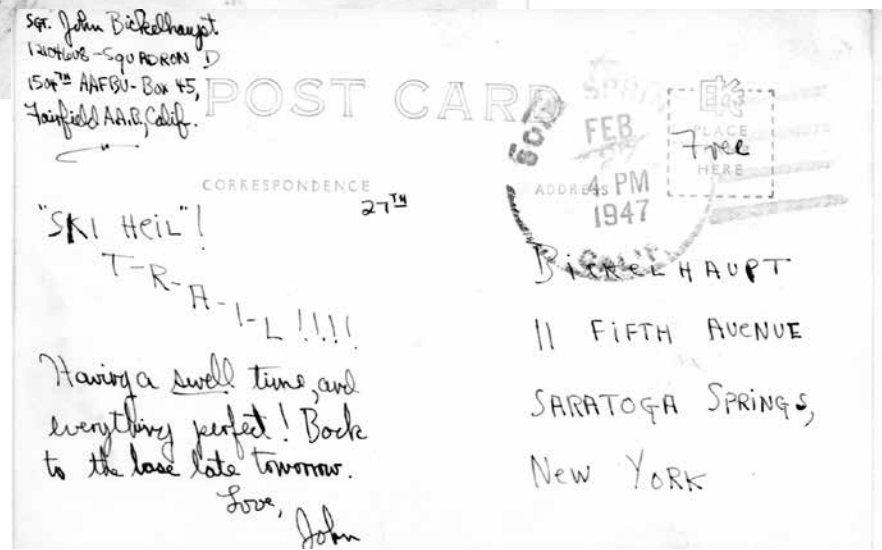 Sgt. John Bickelhaupt
Squadron D
1504TH AAFBU - Box 45,
Fairfield A.A.B., Calif.
POST CARD
CORRESPONDENCE
27TH
"SKI HEIL"!
T-R-A-I-L !!!!
Having a swell time, and
everything perfect! Back
to the base late tomorrow.
Love,
John
EK
PLACE
Free
HERE
ADDRESS
FEB
4 PM
1947
BICKELHAUPT
11 FIFTH AVENUE
SARATOGA SPRINGS,
NEW YORK